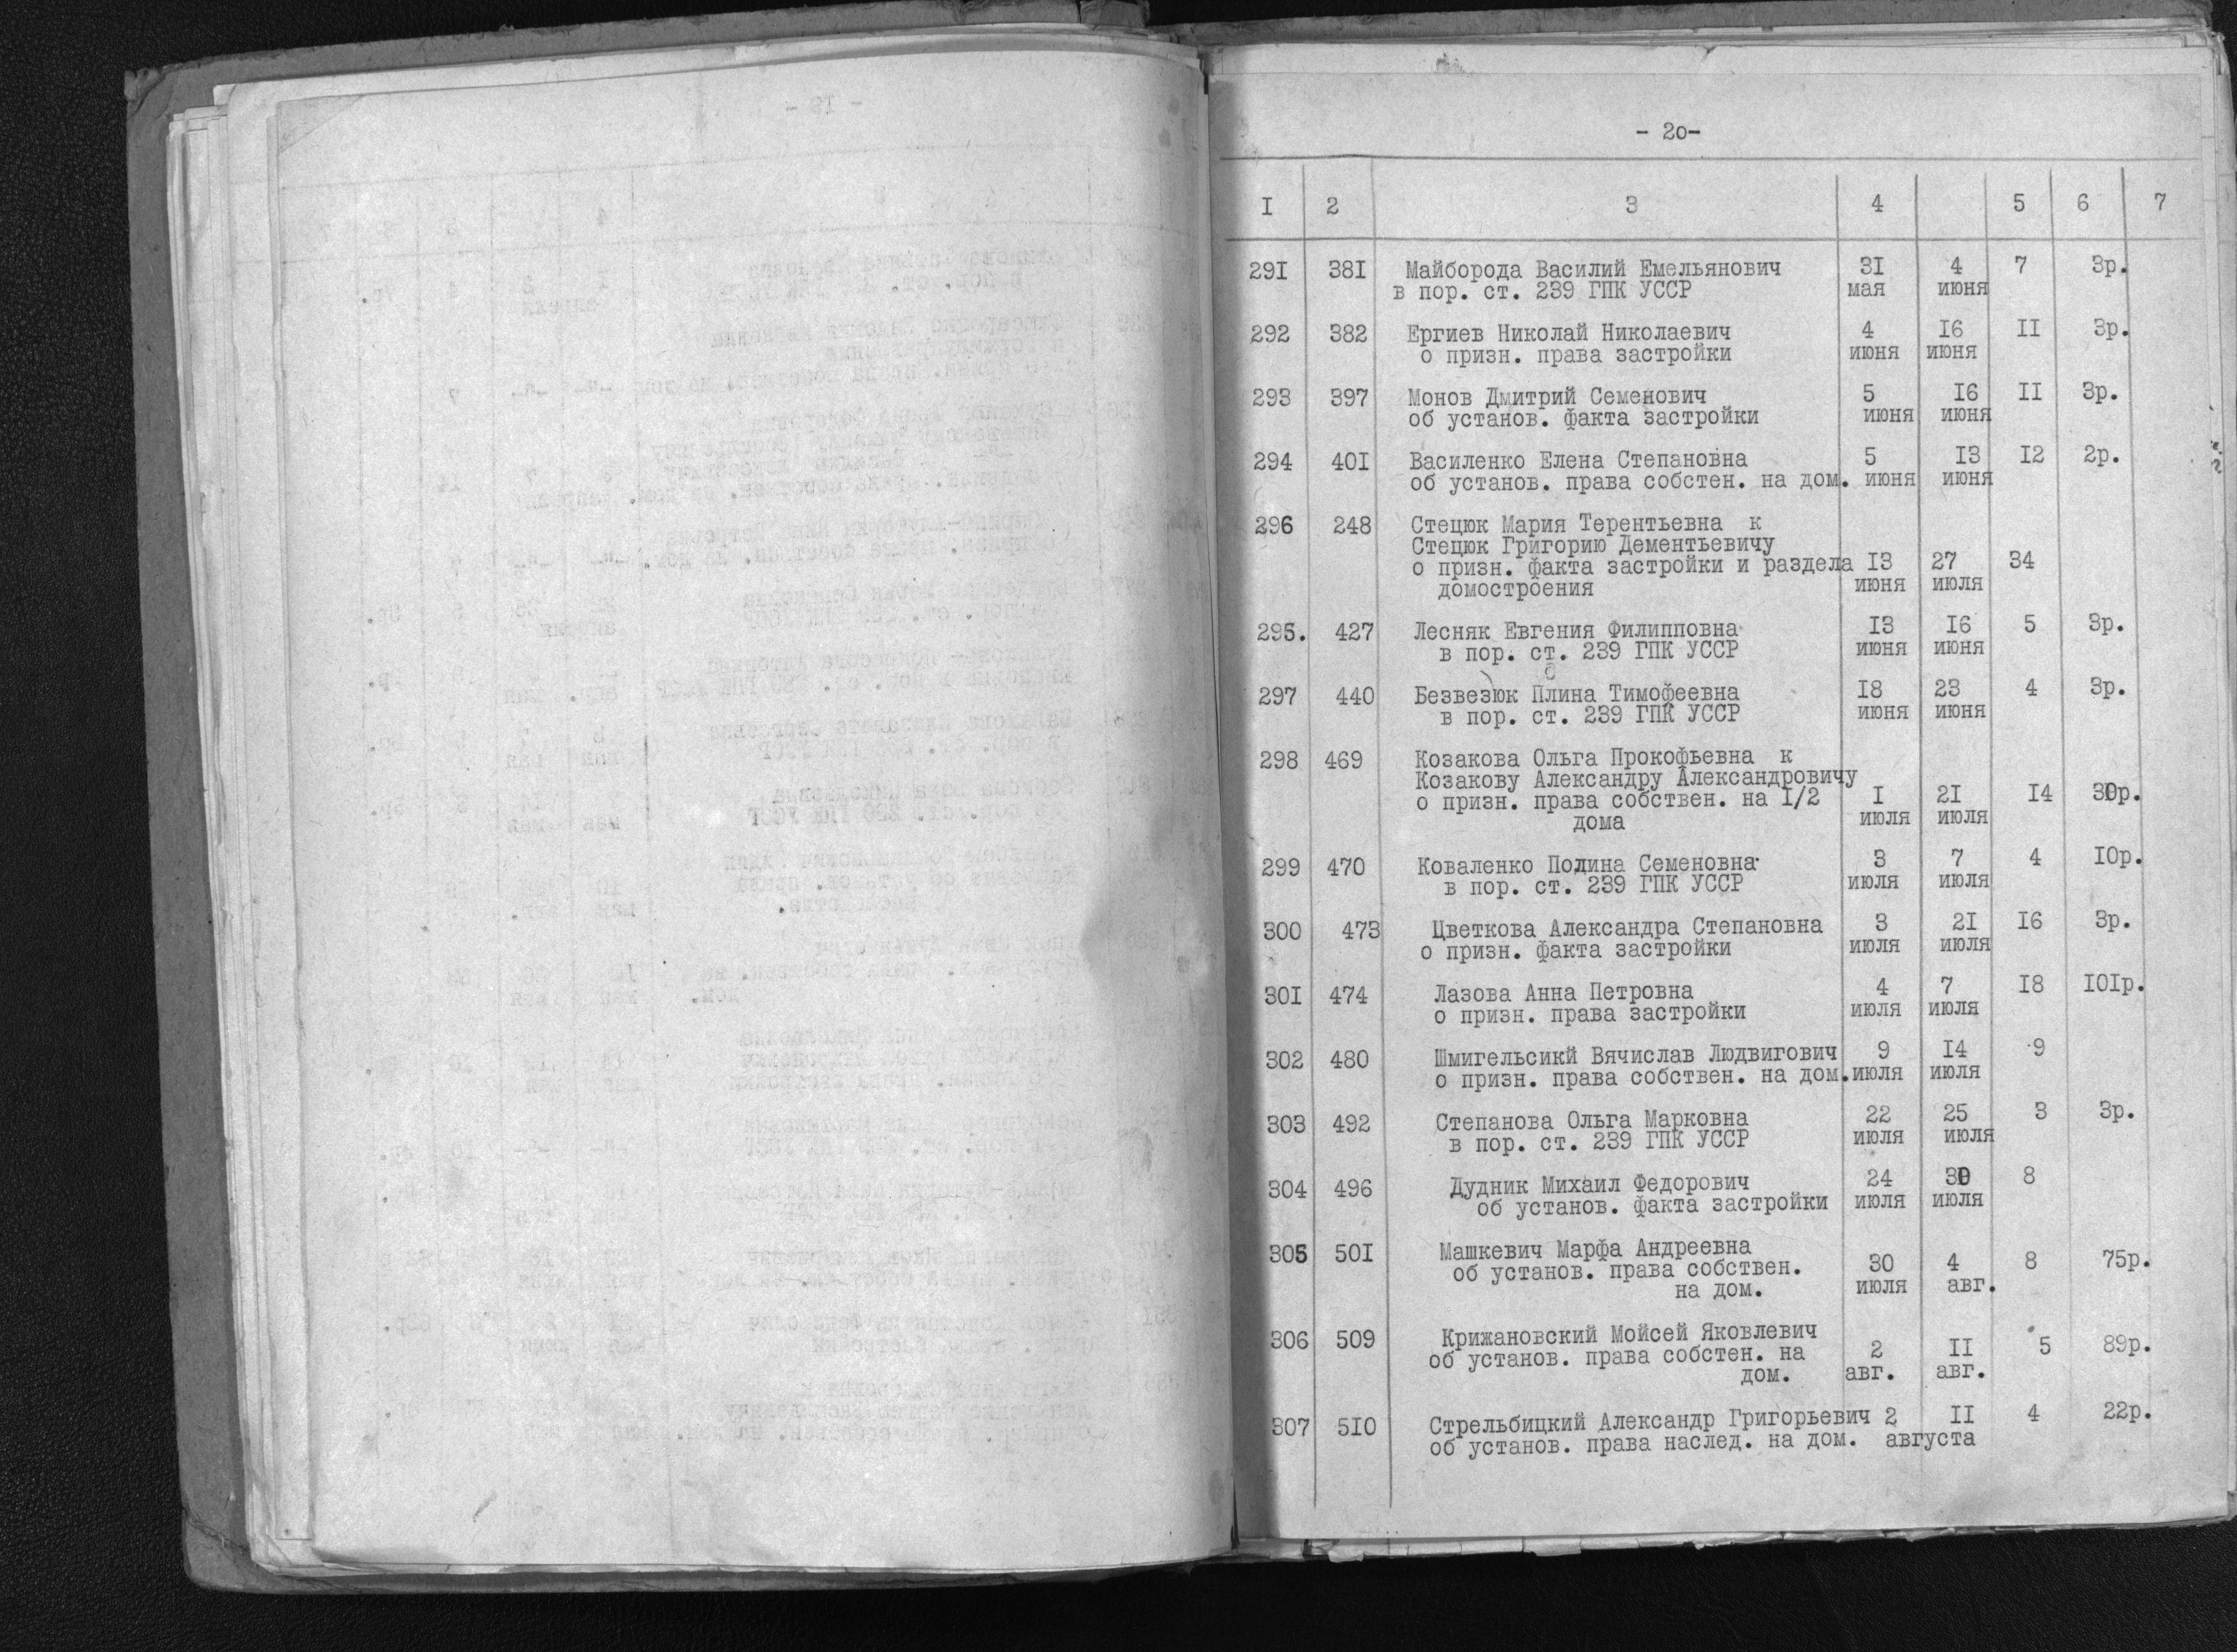 - 2о-
I 2 3 4 5 6 7
29I 38I Майборода Василий Емельянович 3I 4 7 3р.
в пор. ст. 239 ГПК УССР мая июня
292 382 Ергиев Николай Николаевич 4 I6 II 3р.
о призн. права застройки июня июня
293 397 Монов Дмитрий Семенович 5 I6 II 3р.
об установ. факта застройки июня июня
294 40I Василенко Елена Степановна 5 I3 I2 2р.
об установ. права собстен. на дом. июня июня
296 248 Стецюк Мария Терентьевна к
Стецюк Григорию Дементьевичу
о призн. факта застройки и раздела I3 27 34
домостроения июня июля
295. 427 Лесняк Евгения Филипповна I3 I6 5 3р.
в пор. ст. 239 ГПК УССР июня июня
297 440 Безвезюк Плина Тимофеевна I8 23 4 3р.
в пор. ст. 239 ГПК УССР июня июня
298 469 Козакова Ольга Прокофьевна к
Козакову Александру Александровичу
о призн. права собствен. на I/2 I 2I I4 30р.
дома июля июля
299 470 Коваленко Полина Семеновна 3 7 4 I0р.
в пор. ст. 239 ГПК УССР июля июля
300 473 Цветкова Александра Степановна 3 2I I6 3р.
о призн. факта застройки июля июля
30I 474 Лазова Анна Петровна 4 7 I8 I0Iр.
о призн. права застройки июля июля
302 480 Шмигельсикй Вячислав Людвигович 9 I4 9
о призн. права собствен. на дом. июля июля
303 492 Степанова Ольга Марковна 22 25 3 3р.
в пор. ст. 239 ГПК УССР июля июля
304 496 Дудник Михаил Федорович 24 30 8
об установ. факта застройки июля июля
305 50I Машкевич Марфа Андреевна
об установ. права собствен. 30 4 8 75р.
на дом. июля авг.
306 509 Крижановский Мойсей Яковлевич
об установ. права собстен. на 2 II 5 89р.
дом. авг. авг.
307 5I0 Стрельбицкий Александр Григорьевич 2 II 4 22р.
об установ. права наслед. на дом. августа